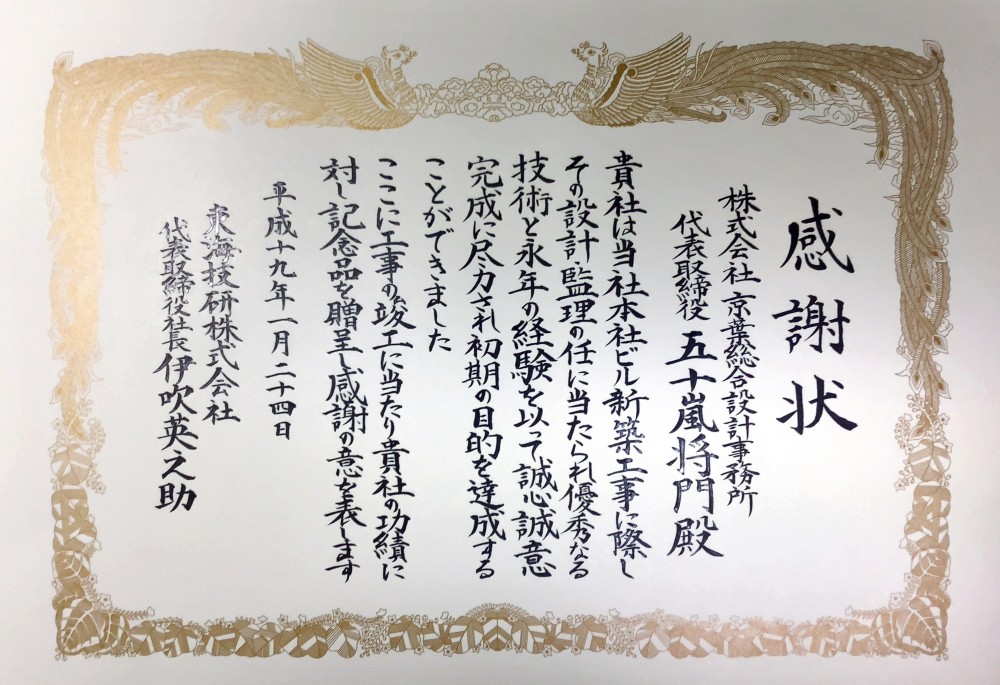 感謝状
株式会社 京葉総合設計事務所
代表取締役 五十嵐将門殿
貴社は当社本社ビル新築工事に際し
その設計監理の任に当たられ優秀なる
技術と永年の経験を以って誠心誠意
完成に尽力され初期の目的を達成する
ことができました
ここに工事の竣工に当たり貴社の功績に
対し記念品を贈呈し感謝の意を表します
平成十九年一月二十四日
東海技研株式会社
代表取締役社長 伊吹英之助